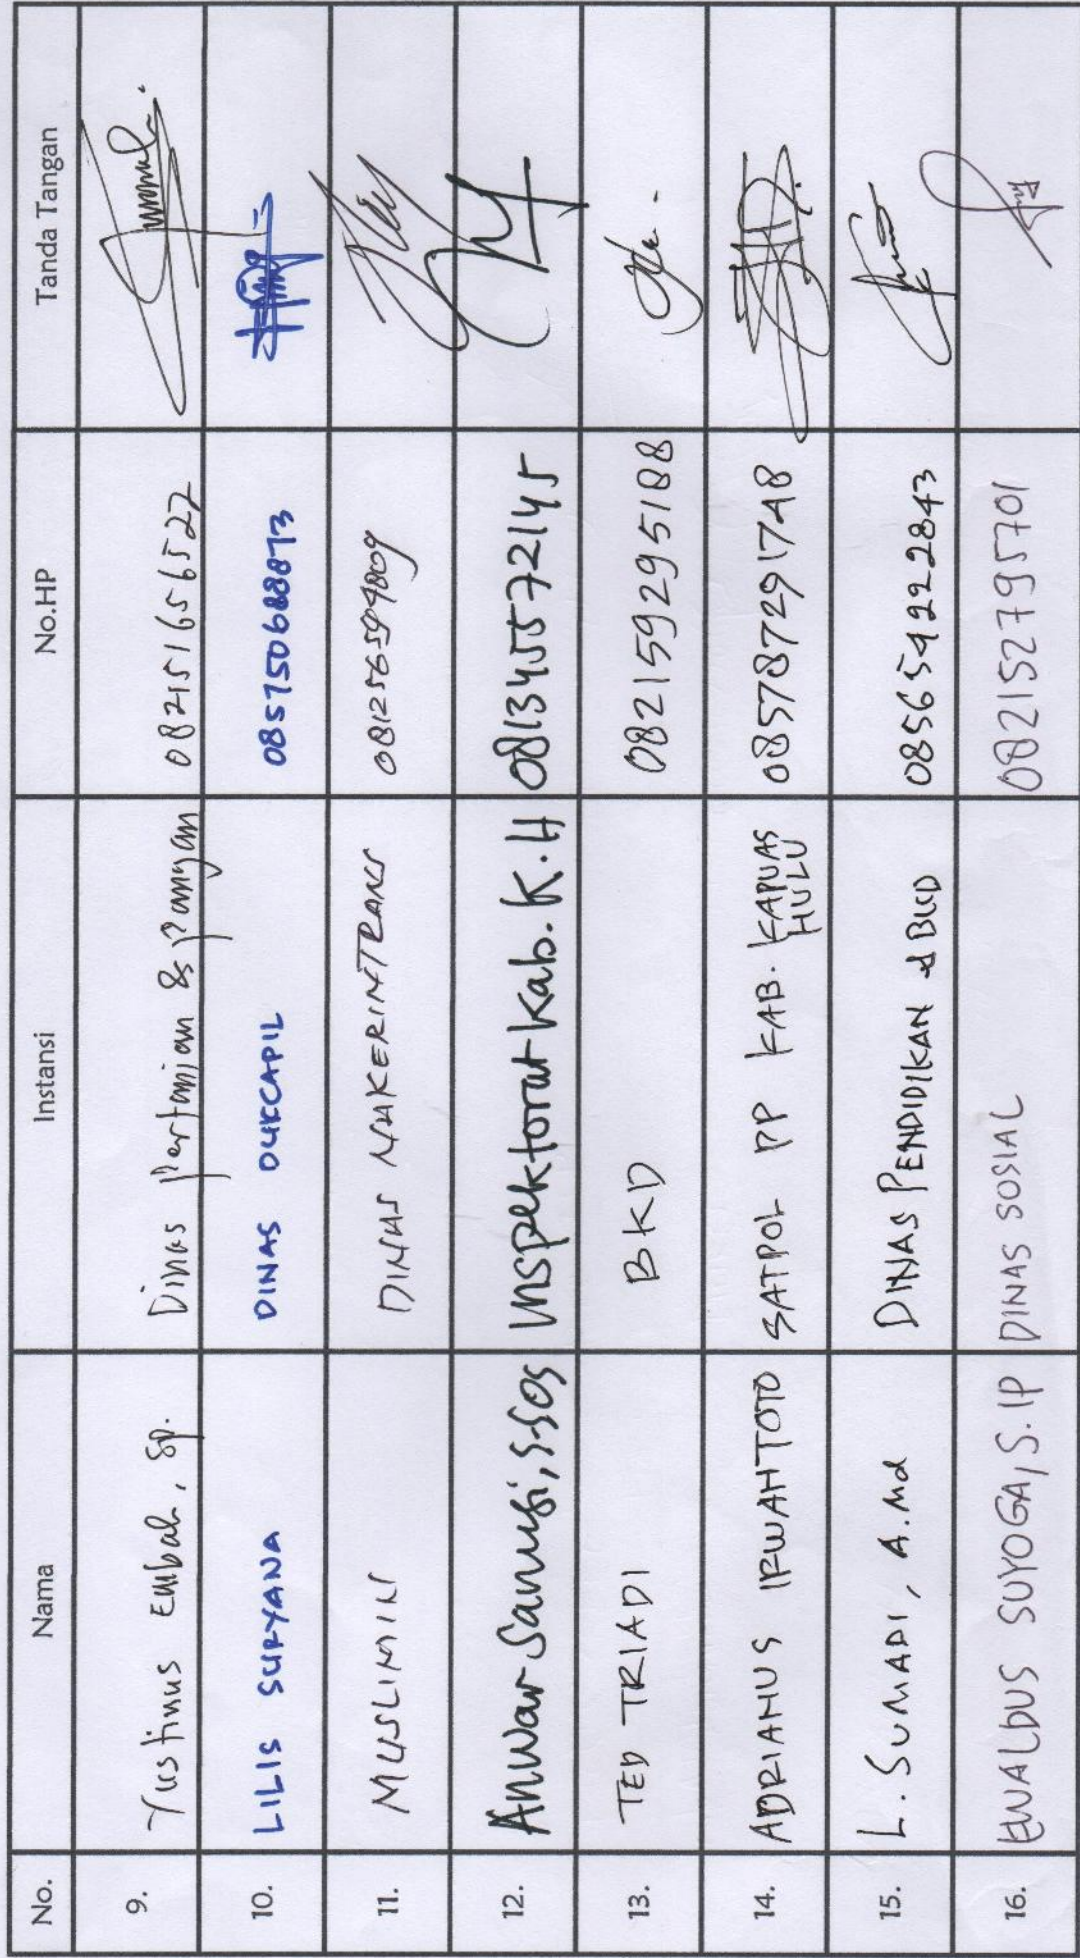 No. Nama Instansi No.HP Tanda Tangan
9. Yustinus Embah, SP. Dinas Pertanian & pangan 082151656522
10. LILIS SURYANA DINAS DUKCAPIL 085750688873
11. MUSLIMIN DINAS NAKERINTRANS 081256594809
12. Anwar Sanusi, S.Sos Inspektorat Kab. K.H 081345572145
13. TED TRIADI BKD 082159295188
14. ADRIANUS IRWANTOTO SATPOL PP KAB. KAPUAS HULU 085787291748
15. L. SUMADI, A.Md DINAS PENDIDIKAN d BUD 085654222843
16. EWALDUS SUYOGA, S.IP DINAS SOSIAL 082152795701